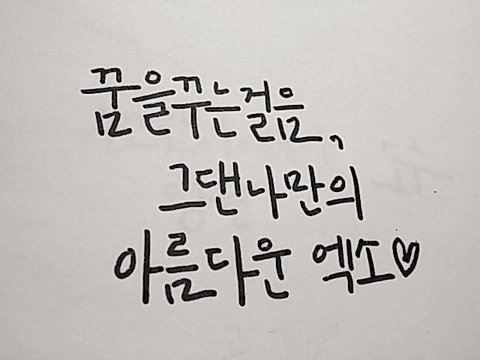 꿈을꾸는걸음,
그댄나만의
아름다운 엑소♡